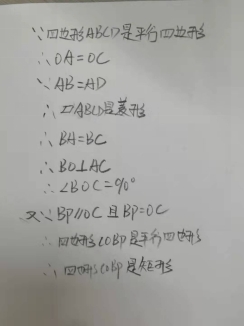 ∵四边形ABCD是平行四边形
∴OA=OC
∵AB=AD
∴▱ABCD是菱形
∴BA=BC
∴BO⊥AC
∴∠BOC=90°
又∵BP∥OC且BP=OC
∴四边形COBP是平行四边形
∴四边形COBP是矩形